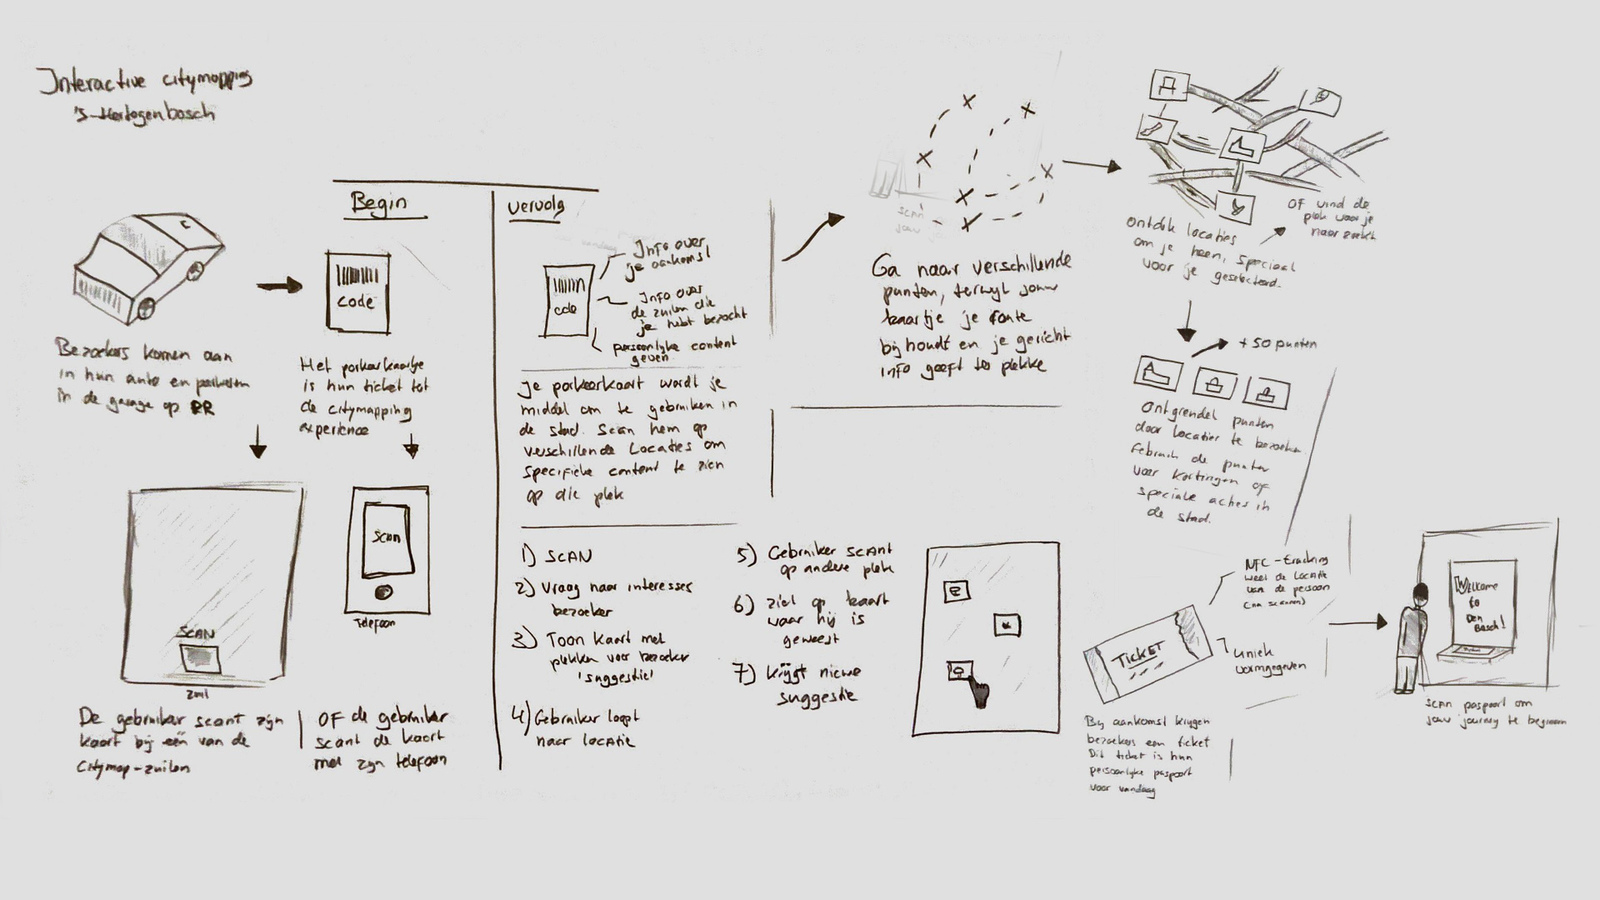 Interactive citymapping
's-Hertogenbosch
Bezoekers komen aan
in hun auto en parkeren
in de garage op
Begin
code
Het parkeerkaartje
is hun ticket tot
de citymapping
experience
SCAN
zuil
De gebruiker scant zijn
kaart bij één van de
Citymap-zuilen
Scan
Telefoon
OF de gebruiker
scant de kaart
met zijn telefoon
vervolg
code
Info over
je aankomst
Info over
de zuilen die
je hebt bezocht
persoonlijke content
geven
Je parkeerkaart wordt je
middel om te gebruiken in
de stad. Scan hem op
verschillende Locaties om
specifieke content te zien
op die plek
1) SCAN
2) Vraag naar interesses
bezoeker
3) Toon kaart met
plekken voor bezoeker
'suggestie'
4) Gebruiker loopt
naar locatie
5) Gebruiker scant
op andere plek
6) ziet op kaart
waar hij is
geweest
7) krijgt nieuwe
suggestie
scan
jouw
Ga naar verschillende
punten, terwijl jouw
kaartje je route
bijhoudt en je gericht
info geeft ter plekke
Ontdek locaties
om je heen, speciaal
voor je geselecteerd.
OF vind de
plek waar je
naar zoekt
+50 punten
Ontgrendel punten
door locaties te bezoeken
Gebruik de punten
voor kortingen of
speciale acties in
de stad.
TICKET
NFC-tracking
weet de locatie
van de persoon
(na scannen)
Uniek
vormgegeven
Bij aankomst krijgen
bezoekers een ticket
Dit ticket is hun
persoonlijke paspoort
voor vandaag
Welkome
to
Den
Bosch!
scan paspoort om
jouw journey te beginnen